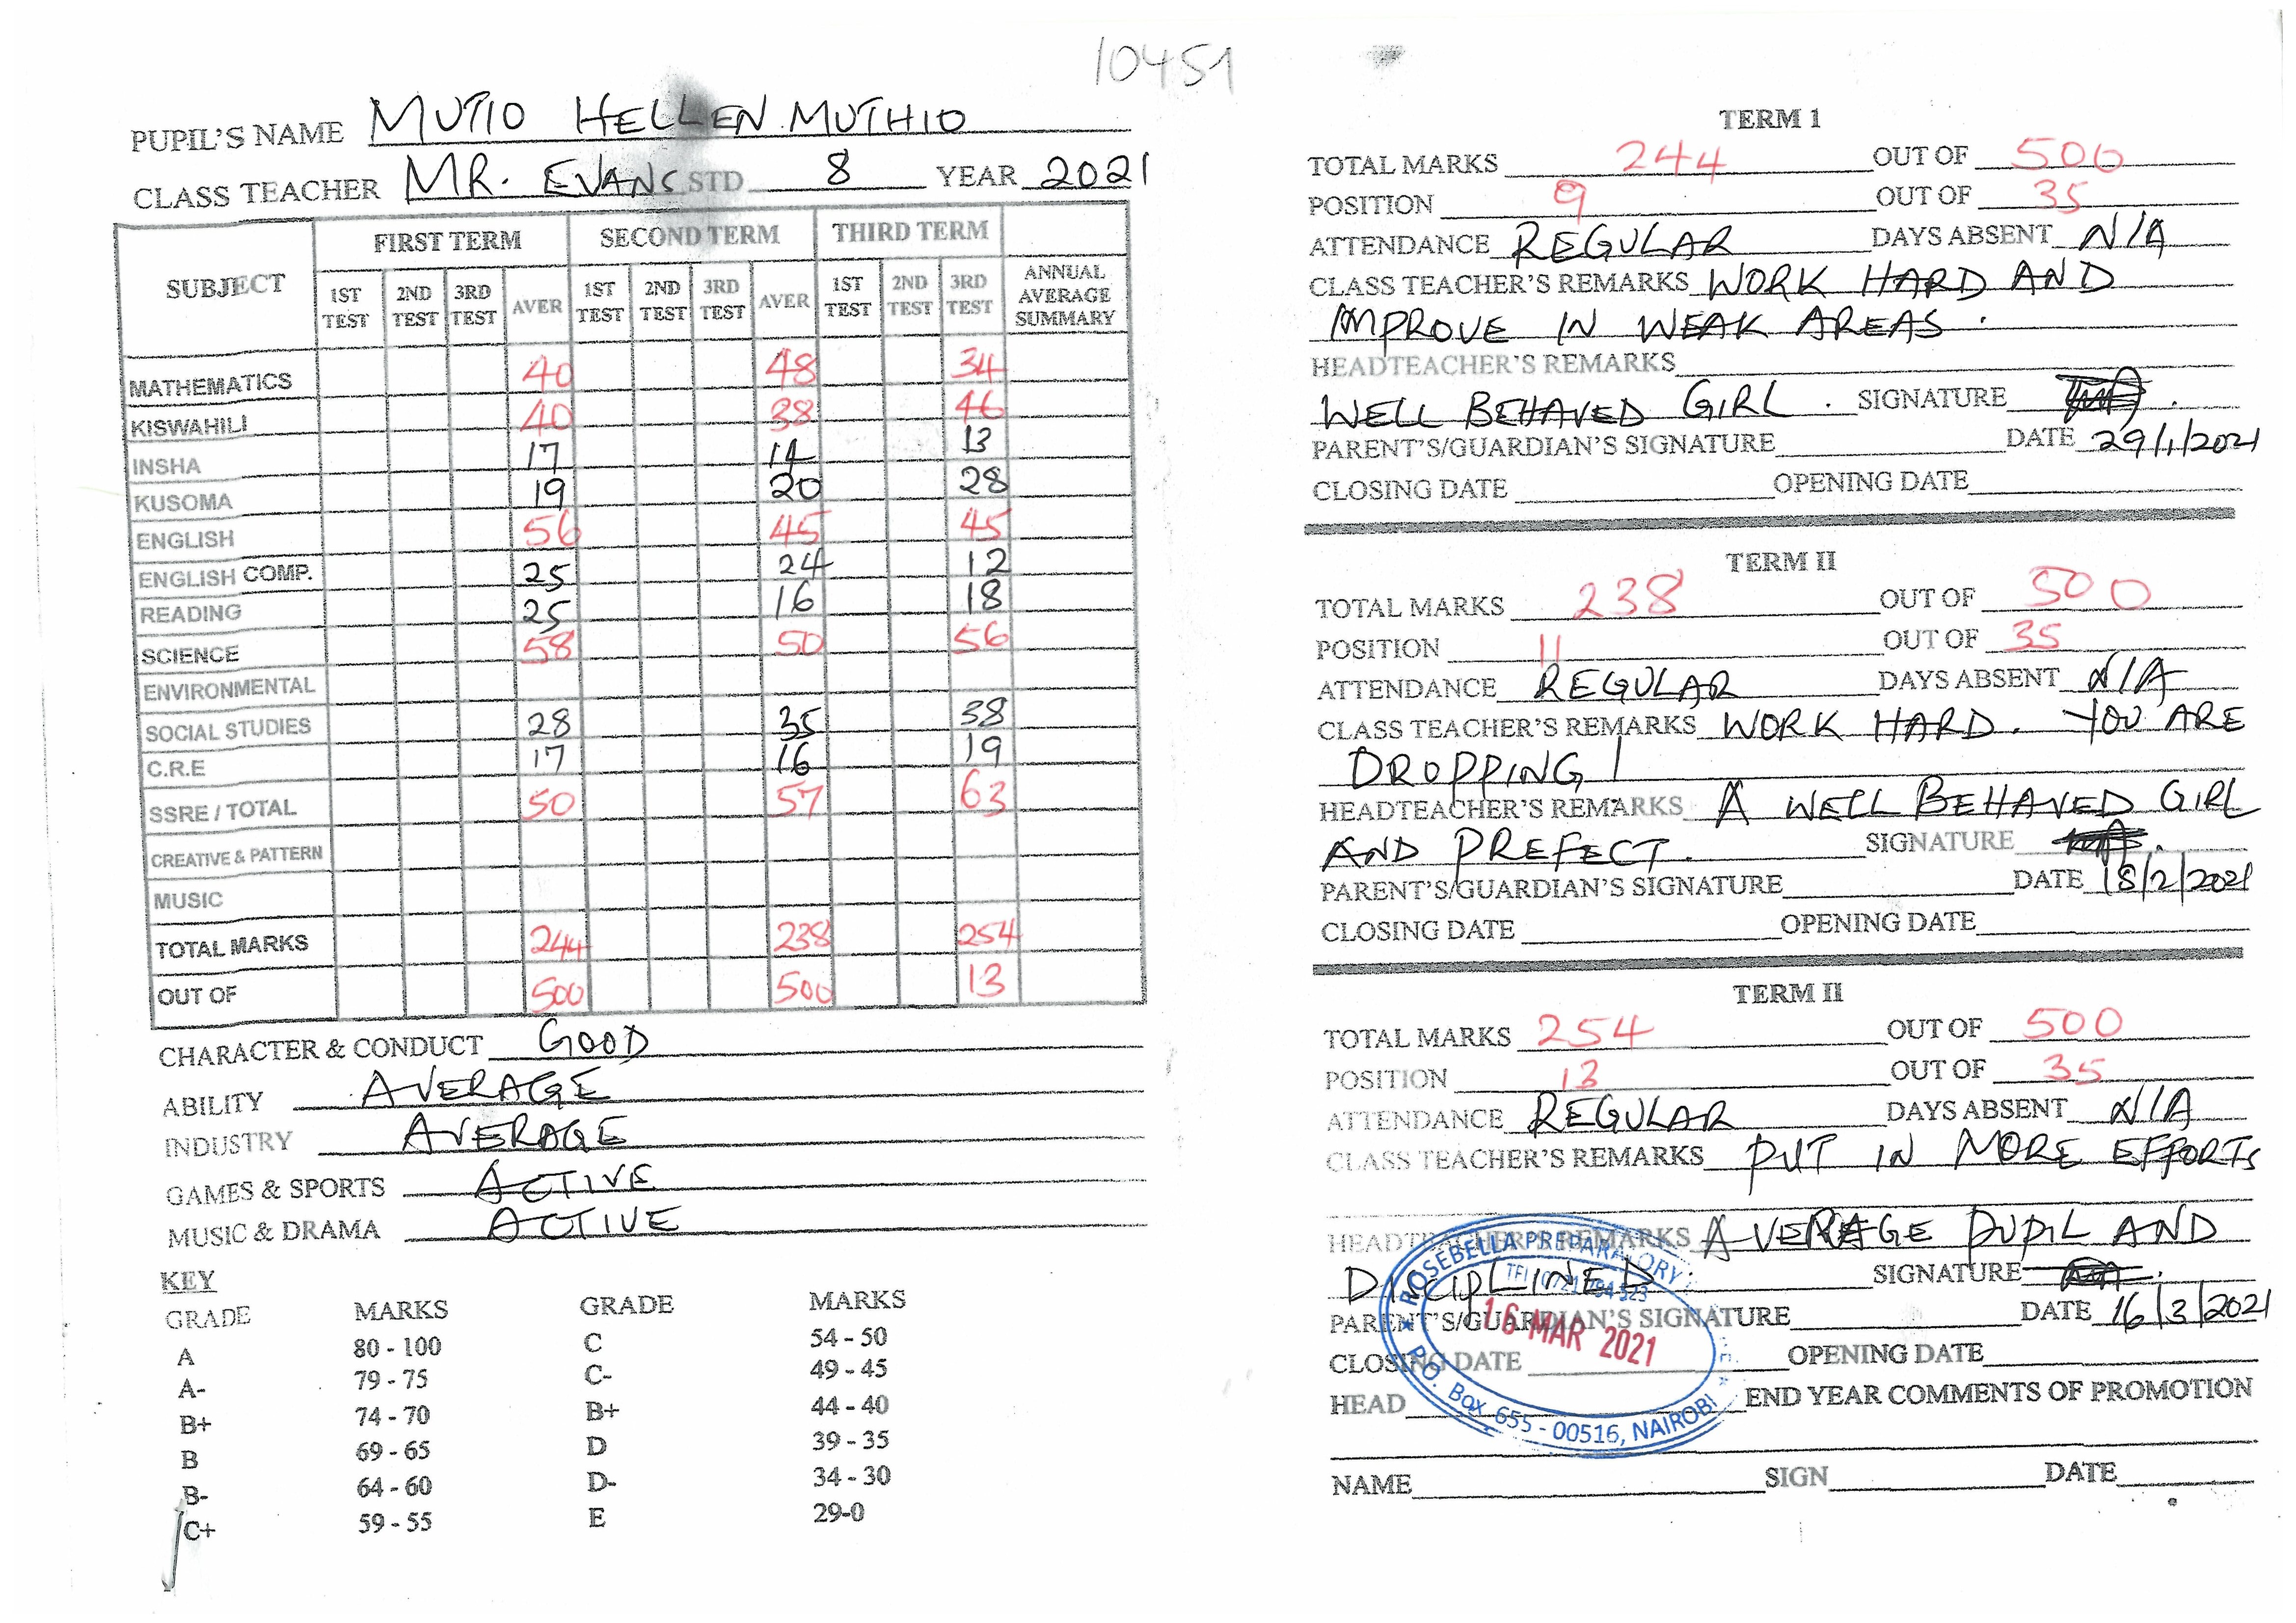 10451
PUPIL'S NAME MUTIO HELLEN MUTHIO
CLASS TEACHER MR. EVANS STD 8 YEAR 2021
SUBJECT FIRST TERM SECOND TERM THIRD TERM
1ST TEST 2ND TEST 3RD TEST AVER 1ST TEST 2ND TEST 3RD TEST AVER 1ST TEST 2ND TEST 3RD TEST ANNUAL AVERAGE SUMMARY
MATHEMATICS 40 48 34
KISWAHILI 40 38 46
INSHA 17 14 13
KUSOMA 19 20 28
ENGLISH 56 45 45
ENGLISH COMP. 25 24 12
READING 25 16 18
SCIENCE 58 50 56
ENVIRONMENTAL
SOCIAL STUDIES 28 35 38
C.R.E 17 16 19
SSRE / TOTAL 50 57 63
CREATIVE & PATTERN
MUSIC
TOTAL MARKS 244 238 254
OUT OF 500 500 13
CHARACTER & CONDUCT GOOD
ABILITY AVERAGE
INDUSTRY AVERAGE
GAMES & SPORTS ACTIVE
MUSIC & DRAMA ACTIVE
KEY
GRADE MARKS GRADE MARKS
A 80 - 100 C 54 - 50
A- 79 - 75 C- 49 - 45
B+ 74 - 70 B+ 44 - 40
B 69 - 65 D 39 - 35
B- 64 - 60 D- 34 - 30
C+ 59 - 55 E 29-0
TERM 1
TOTAL MARKS 244 OUT OF 500
POSITION 9 OUT OF 35
ATTENDANCE REGULAR DAYS ABSENT N/A
CLASS TEACHER'S REMARKS WORK HARD AND
IMPROVE IN WEAK AREAS.
HEADTEACHER'S REMARKS
WELL BEHAVED GIRL. SIGNATURE
PARENT'S/GUARDIAN'S SIGNATURE DATE 29/1/2021
CLOSING DATE OPENING DATE
TERM II
TOTAL MARKS 238 OUT OF 500
POSITION 11 OUT OF 35
ATTENDANCE REGULAR DAYS ABSENT N/A
CLASS TEACHER'S REMARKS WORK HARD. YOU ARE
DROPPING!
HEADTEACHER'S REMARKS A WELL BEHAVED GIRL
AND PREFECT. SIGNATURE
PARENT'S/GUARDIAN'S SIGNATURE DATE 18/2/2021
CLOSING DATE OPENING DATE
TERM II
TOTAL MARKS 254 OUT OF 500
POSITION 13 OUT OF 35
ATTENDANCE REGULAR DAYS ABSENT N/A
CLASS TEACHER'S REMARKS PUT IN MORE EFFORTS
HEADTEACHER'S REMARKS AVERAGE PUPIL AND
DISCIPLINED. SIGNATURE
PARENT'S/GUARDIAN'S SIGNATURE DATE 16/3/2021
CLOSING DATE OPENING DATE
HEAD END YEAR COMMENTS OF PROMOTION
NAME SIGN DATE
ROSEBELLA PREPARATORY
16 MAR 2021
P.O. Box 655 - 00516, NAIROBI